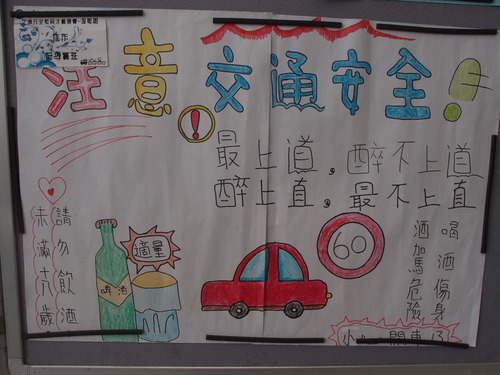 佳作
注意交通安全!
!
最上道，醉不上道
醉上直。最不上直
60
喝酒傷身
酒加馬危險
適量
啤酒
請勿飲酒
未滿十八歲
開車